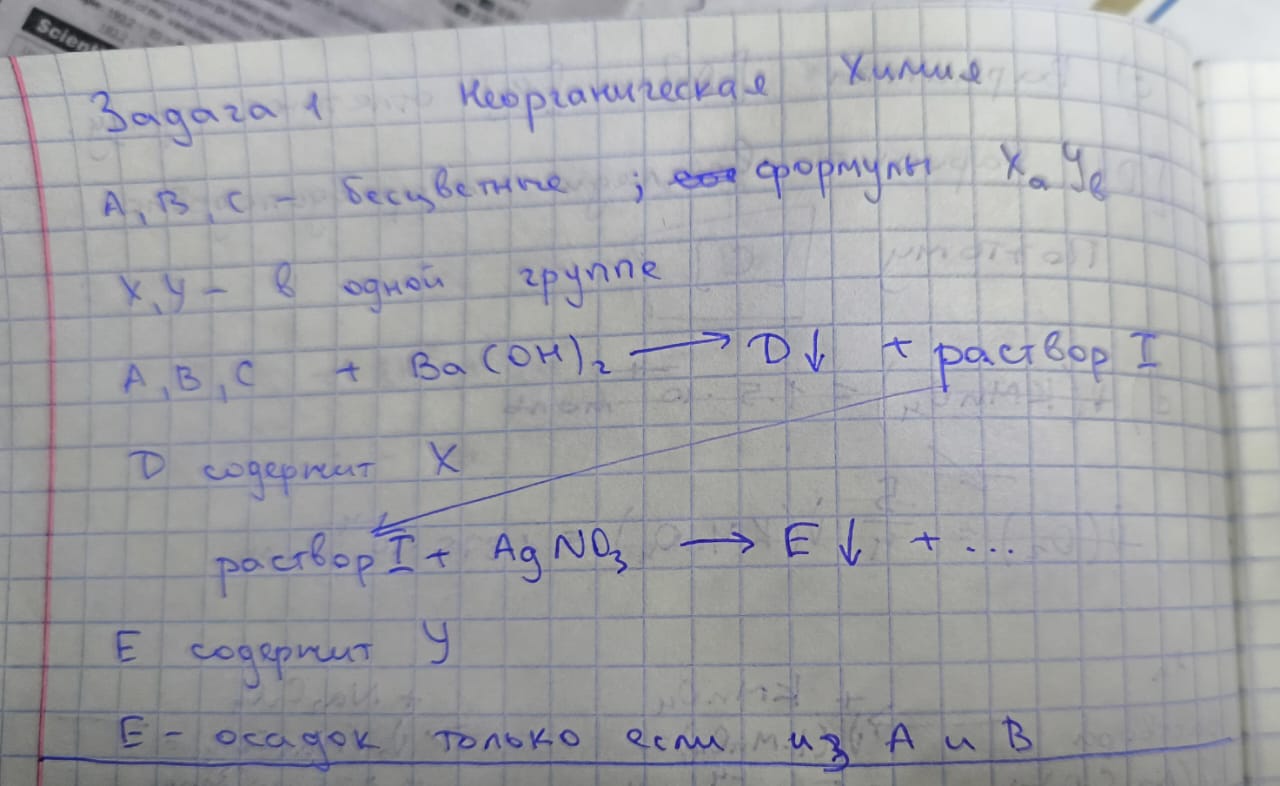 Scienti
Задача 1 Неорганическая Химия
A, B, C - бесцветные ; формулы XaYb
X, Y - в одной группе
A, B, C + Ba(OH)2 ⟶ D↓ + раствор I
D содержит X
раствор I + AgNO3 ⟶ E↓ + ...
E содержит Y
E - осадок только если из A и B